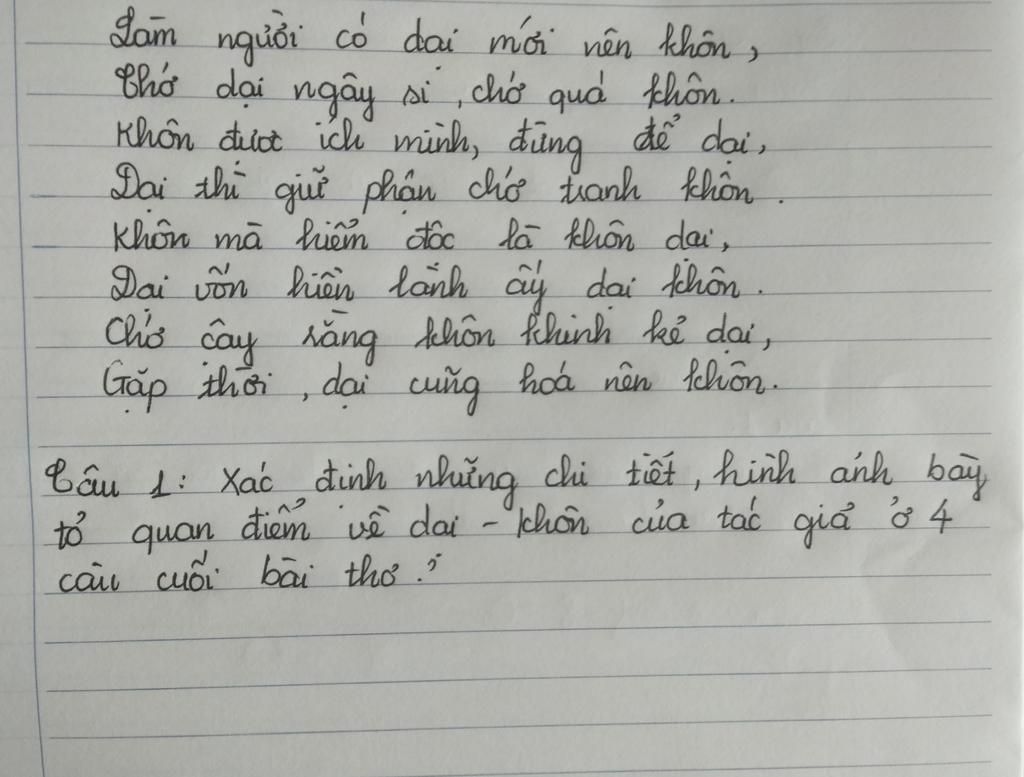 Làm người có dại mới nên khôn,
Chớ dại ngây si, chớ quá khôn.
Khôn được ích mình, đừng để dại,
Dại thì giữ phận chớ tranh khôn.
Khôn mà hiểm độc là khôn dại,
Dại vốn hiền lành ấy dại khôn.
Chớ cậy rằng khôn khinh kẻ dại,
Gặp thời, dại cũng hoá nên khôn.
Câu 1: Xác định những chi tiết, hình ảnh bày
tỏ quan điểm về dại - khôn của tác giả ở 4
câu cuối bài thơ?